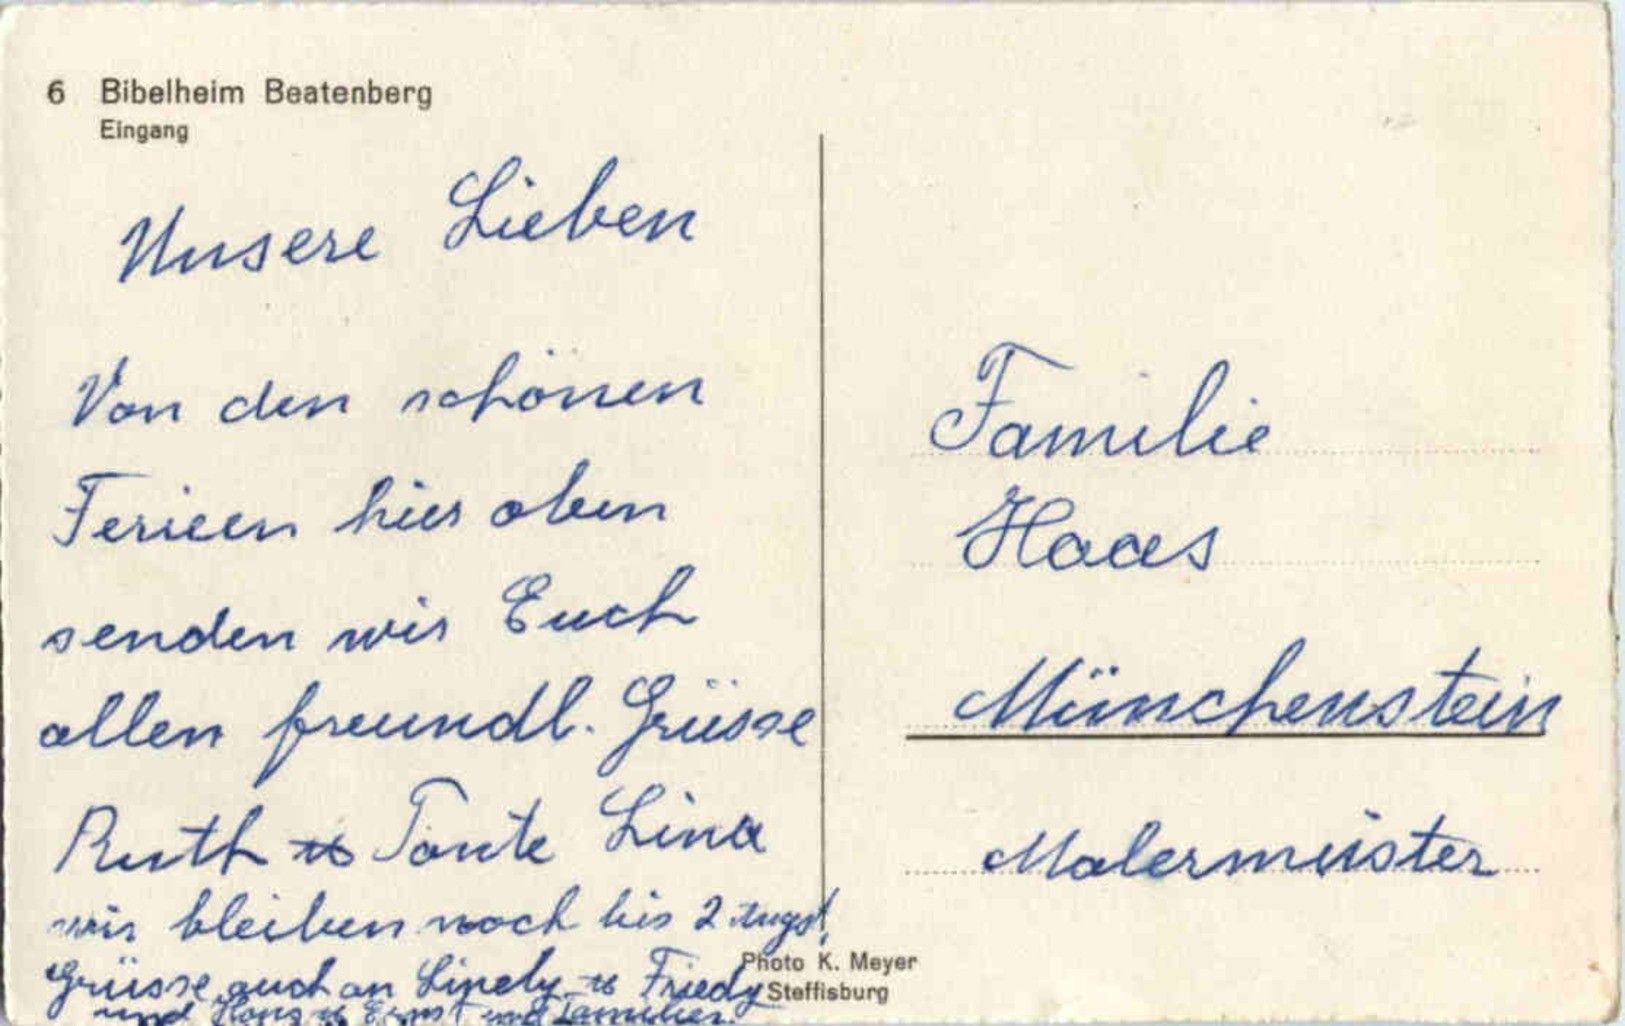 6 Bibelheim Beatenberg
Eingang
Unsere Lieben
Von den schönen
Ferieen hier oben
senden wir Euch
allen freundl. Grüsse
Ruth u Tante Lina
wir bleiben noch bis 2 Augst!
Grüsse auch an u Friedy
und Hans u Ernst und Familien.
Photo K. Meyer
Steffisburg
Familie
Haas
Münchenstein
Malermeister